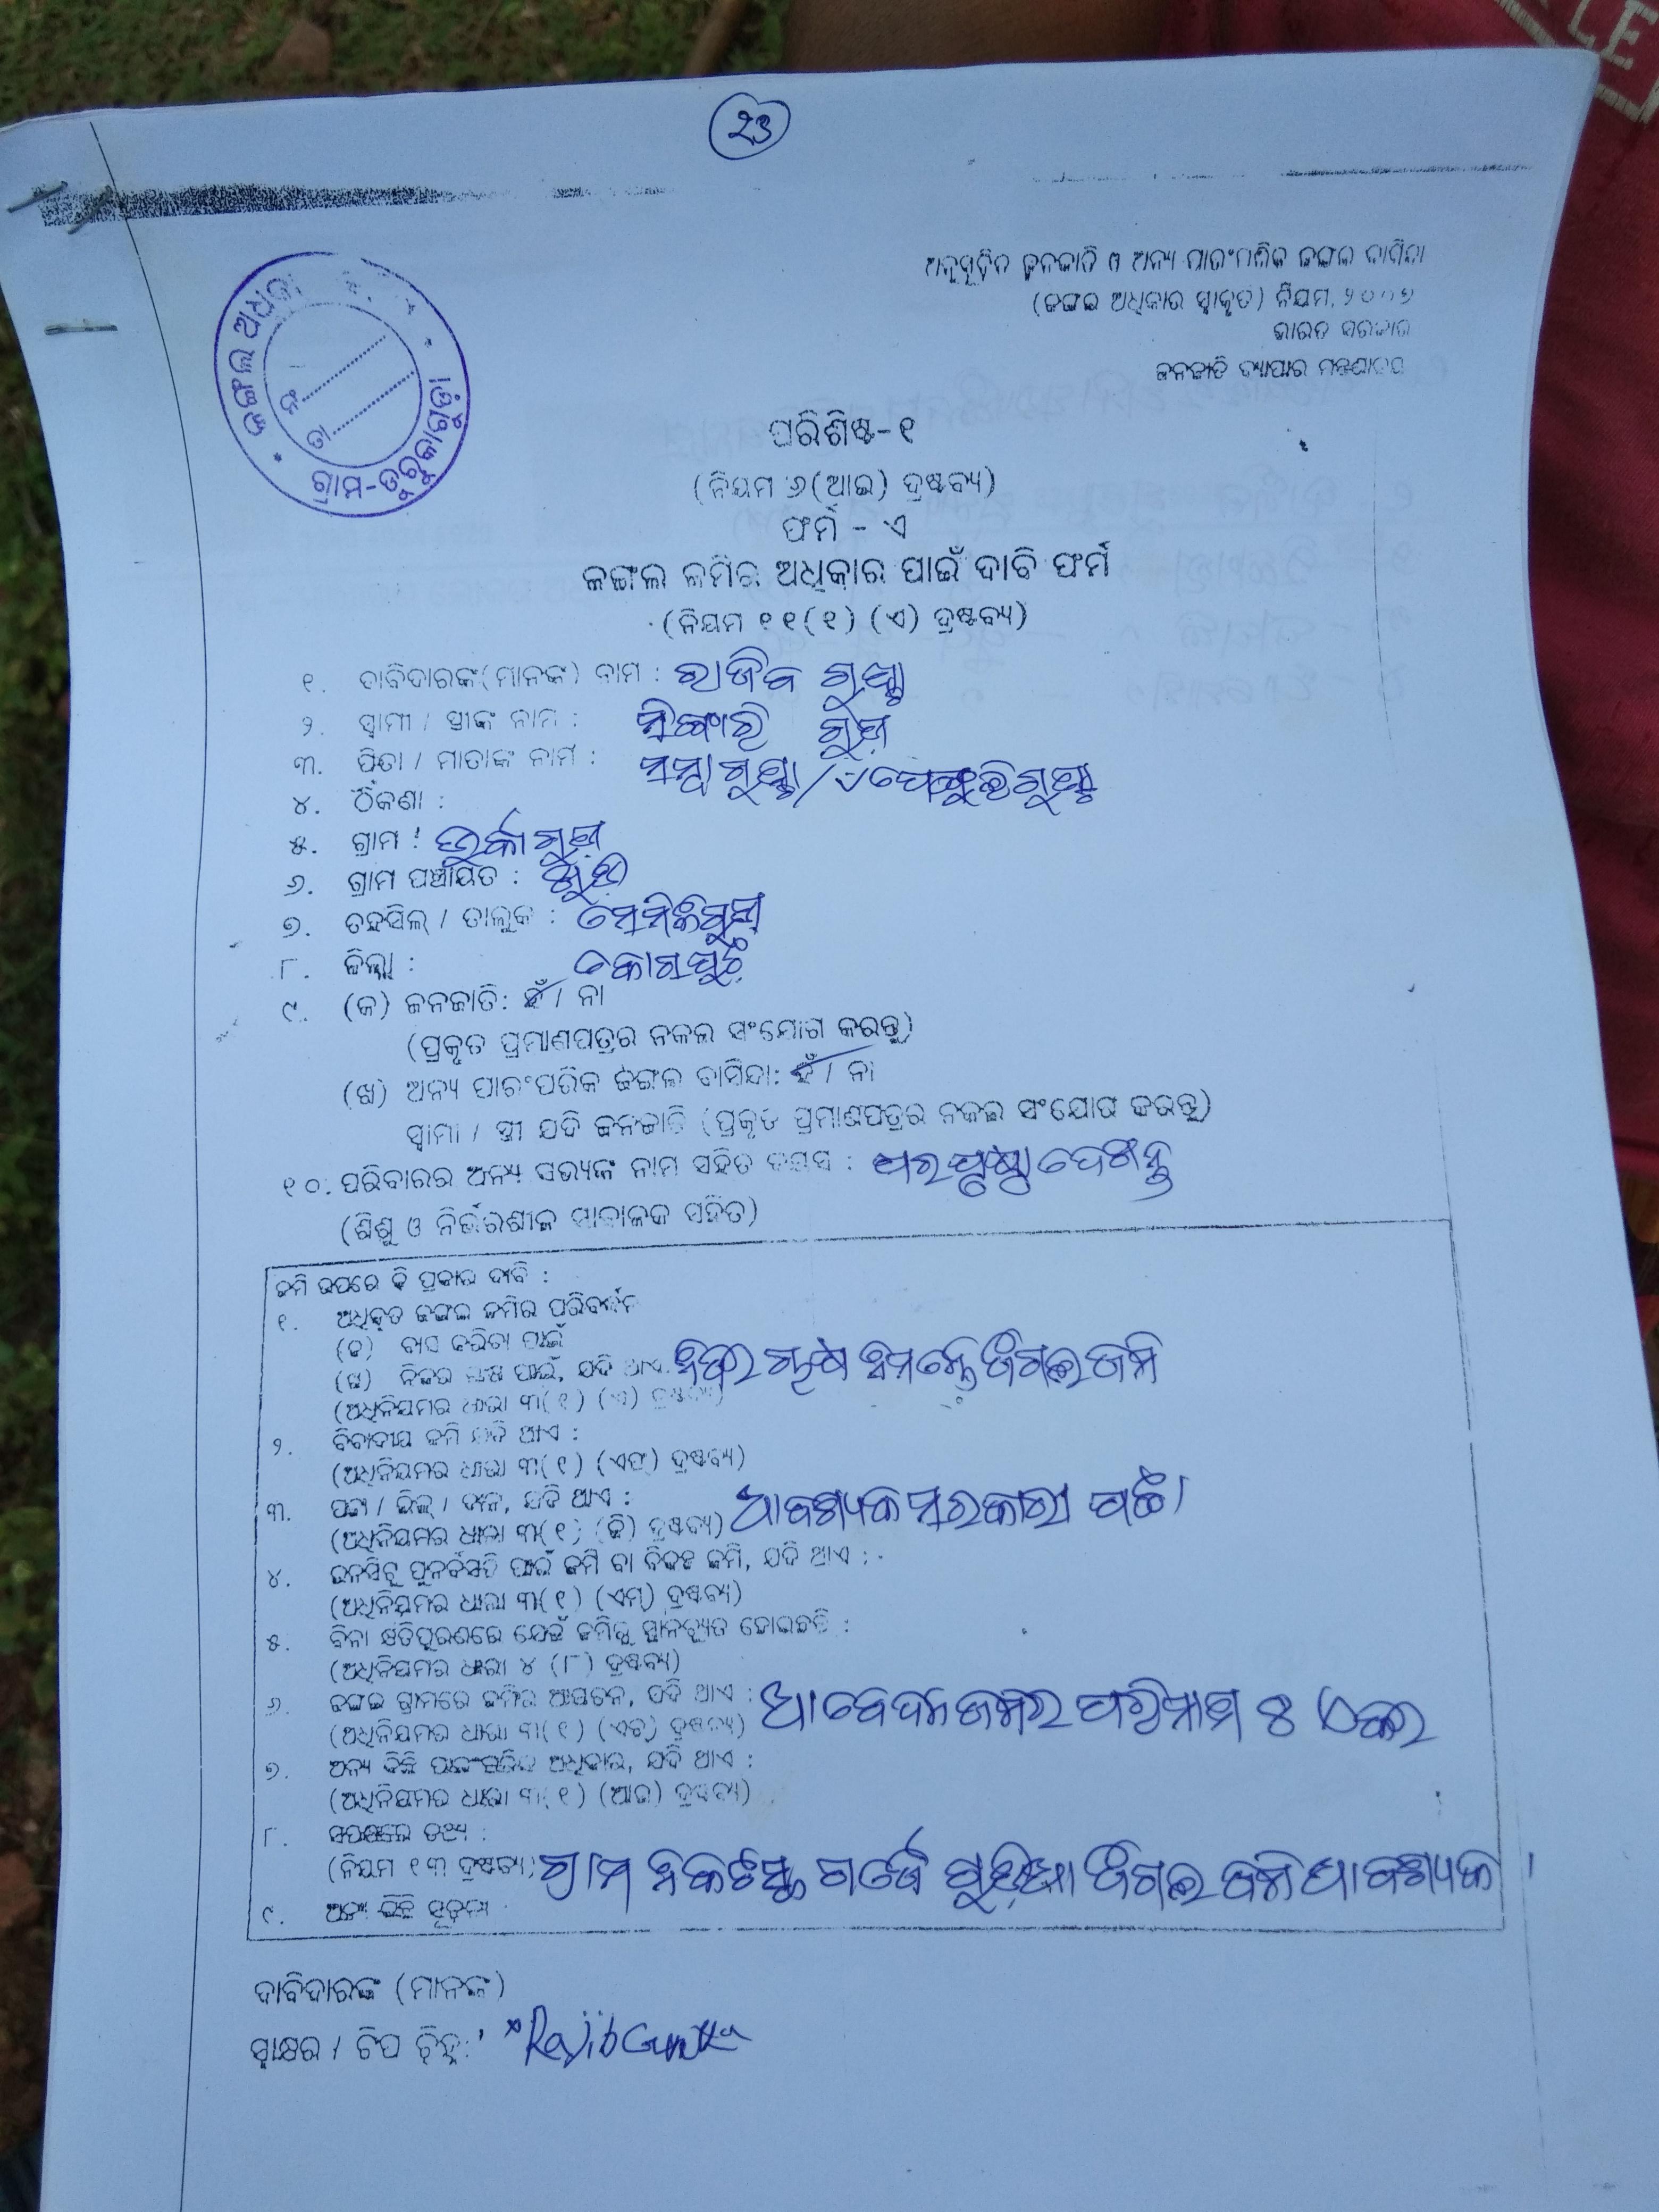 ୨୬
ଅନୁସୂଚିତ ଜନଜାତି ଓ ଅନ୍ୟ ପାରଂମ୍ପରିକ ଜଙ୍ଗଲ ବାସିନ୍ଦା
(ଜଙ୍ଗଲ ଅଧିକାର ସ୍ୱୀକୃତି) ନିୟମ, ୨୦୦୭
ଭାରତ ସରକାର
ଜନଜାତି ବ୍ୟାପାର ମନ୍ତ୍ରଣାଳୟ
ଜଙ୍ଗଲ ଅଧିକାର
ନଂ
ତା
ଗ୍ରାମ-ତୁରୁକାଗୁଡ଼ା
ପରିଶିଷ୍ଟ-୧
(ନିୟମ ୬(ଆଇ) ଦ୍ରଷ୍ଟବ୍ୟ)
ଫର୍ମ - ଏ
ଜଙ୍ଗଲ ଜମିର ଅଧିକାର ପାଇଁ ଦାବି ଫର୍ମ
(ନିୟମ ୧୧(୧) (ଏ) ଦ୍ରଷ୍ଟବ୍ୟ)
୧. ଦାବିଦାରଙ୍କ(ମାନଙ୍କ) ନାମ : ରାଜିବ ଗୁଣ୍ଠା
୨. ସ୍ୱାମୀ / ସ୍ତ୍ରୀଙ୍କ ନାମ :
୩. ପିତା / ମାତାଙ୍କ ନାମ :
୪. ଠିକଣା :
୫. ଗ୍ରାମ : ତୁର୍କାଗୁଡ଼ା
୬. ଗ୍ରାମ ପଞ୍ଚାୟତ :
୭. ତହସିଲ୍ / ତାଲୁକ : ସେମିଳିଗୁଡ଼ା
୮. ଜିଲ୍ଲା : କୋରାପୁଟ
୯. (କ) ଜନଜାତି: ହଁ / ନା
(ପ୍ରକୃତ ପ୍ରମାଣପତ୍ରର ନକଲ ସଂଯୋଗ କରନ୍ତୁ)
(ଖ) ଅନ୍ୟ ପାରଂପରିକ ଜଙ୍ଗଲ ବାସିନ୍ଦା: ହଁ / ନା
ସ୍ୱାମୀ / ସ୍ତ୍ରୀ ଯଦି ଜନଜାତି (ପ୍ରକୃତ ପ୍ରମାଣପତ୍ରର ନକଲ ସଂଯୋଗ କରନ୍ତୁ)
୧୦. ପରିବାରର ଅନ୍ୟ ସଭ୍ୟଙ୍କ ନାମ ସହିତ ବୟସ : ପର ପୃଷ୍ଠା ଦେଖନ୍ତୁ
(ଶିଶୁ ଓ ନିର୍ଭରଶୀଳ ସାବାଳକ ସହିତ)
ଜମି ଉପରେ କି ପ୍ରକାର ଦାବି :
୧. ଅଧିକୃତ ଜଙ୍ଗଲ ଜମିର ପରିବର୍ତ୍ତନ
(କ) ବାସ କରିବା ପାଇଁ
(ଖ) ନିଜର ଚାଷ ପାଇଁ, ଯଦି ଥାଏ. ନିଜର ଚାଷ ନିମନ୍ତେ ଜଂଗଲ ଜମି
(ଅଧିନିୟମର ଧାରା ୩(୧) (ଏ) ଦ୍ରଷ୍ଟବ୍ୟ)
୨. ବିବାଦୀୟ ଜମି ଯଦି ଥାଏ :
(ଅଧିନିୟମର ଧାରା ୩(୧) (ଏଫ୍) ଦ୍ରଷ୍ଟବ୍ୟ)
୩. ପଟ୍ଟା / ଲିଜ୍ / ଦାନ, ଯଦି ଥାଏ :
(ଅଧିନିୟମର ଧାରା ୩(୧) (ଜି) ଦ୍ରଷ୍ଟବ୍ୟ) ଆବଶ୍ୟକ ସରକାରୀ ପଟ୍ଟା
୪. ଇନସିଟୁ ପୁନର୍ବସତି ପାଇଁ ଜମି ବା ବିକଳ୍ପ ଜମି, ଯଦି ଥାଏ :
(ଅଧିନିୟମର ଧାରା ୩(୧) (ଏମ୍) ଦ୍ରଷ୍ଟବ୍ୟ)
୫. ବିନା କ୍ଷତିପୂରଣରେ ଯେଉଁ ଜମିରୁ ସ୍ଥାନଚ୍ୟୁତ ହୋଇଛନ୍ତି :
(ଅଧିନିୟମର ଧାରା ୪ (୮) ଦ୍ରଷ୍ଟବ୍ୟ)
୬. ଜଙ୍ଗଲ ଗ୍ରାମରେ ଜମିର ଆୟତନ, ଯଦି ଥାଏ :
(ଅଧିନିୟମର ଧାରା ୩(୧) (ଏଚ୍) ଦ୍ରଷ୍ଟବ୍ୟ) ଆବେଦନ ଜମିର ପରିମାଣ ୫ ଏକର
୭. ଅନ୍ୟ କିଛି ପାରଂପରିକ ଅଧିକାର, ଯଦି ଥାଏ :
(ଅଧିନିୟମର ଧାରା ୩(୧) (ଆଇ) ଦ୍ରଷ୍ଟବ୍ୟ)
୮. ସପକ୍ଷରେ ତଥ୍ୟ :
(ନିୟମ ୧୩ ଦ୍ରଷ୍ଟବ୍ୟ) ଗ୍ରାମ ନିକଟସ୍ଥ ଜଂଗଲ ଜମି ଆବଶ୍ୟକ ।
୯. ଅନ୍ୟ କିଛି ସୂଚନା
ଦାବିଦାରଙ୍କ (ମାନଙ୍କ)
ସ୍ୱାକ୍ଷର / ଟିପ ଚିହ୍ନ: Rajib Guntha